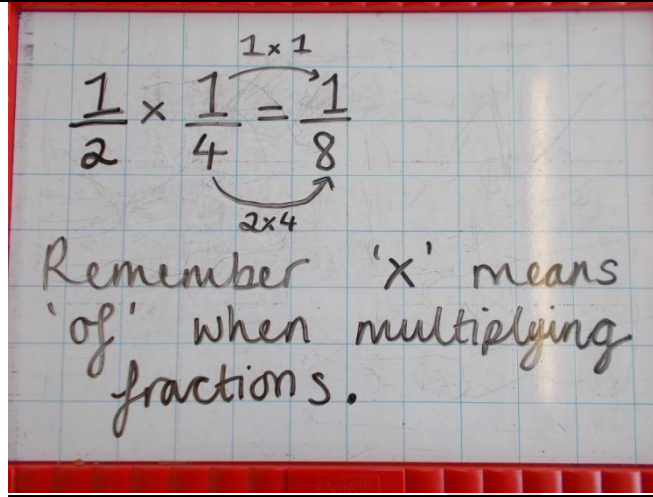 1 x 1
1/2 x 1/4 = 1/8
2x4
Remember 'x' means
'of' when multiplying
fractions.